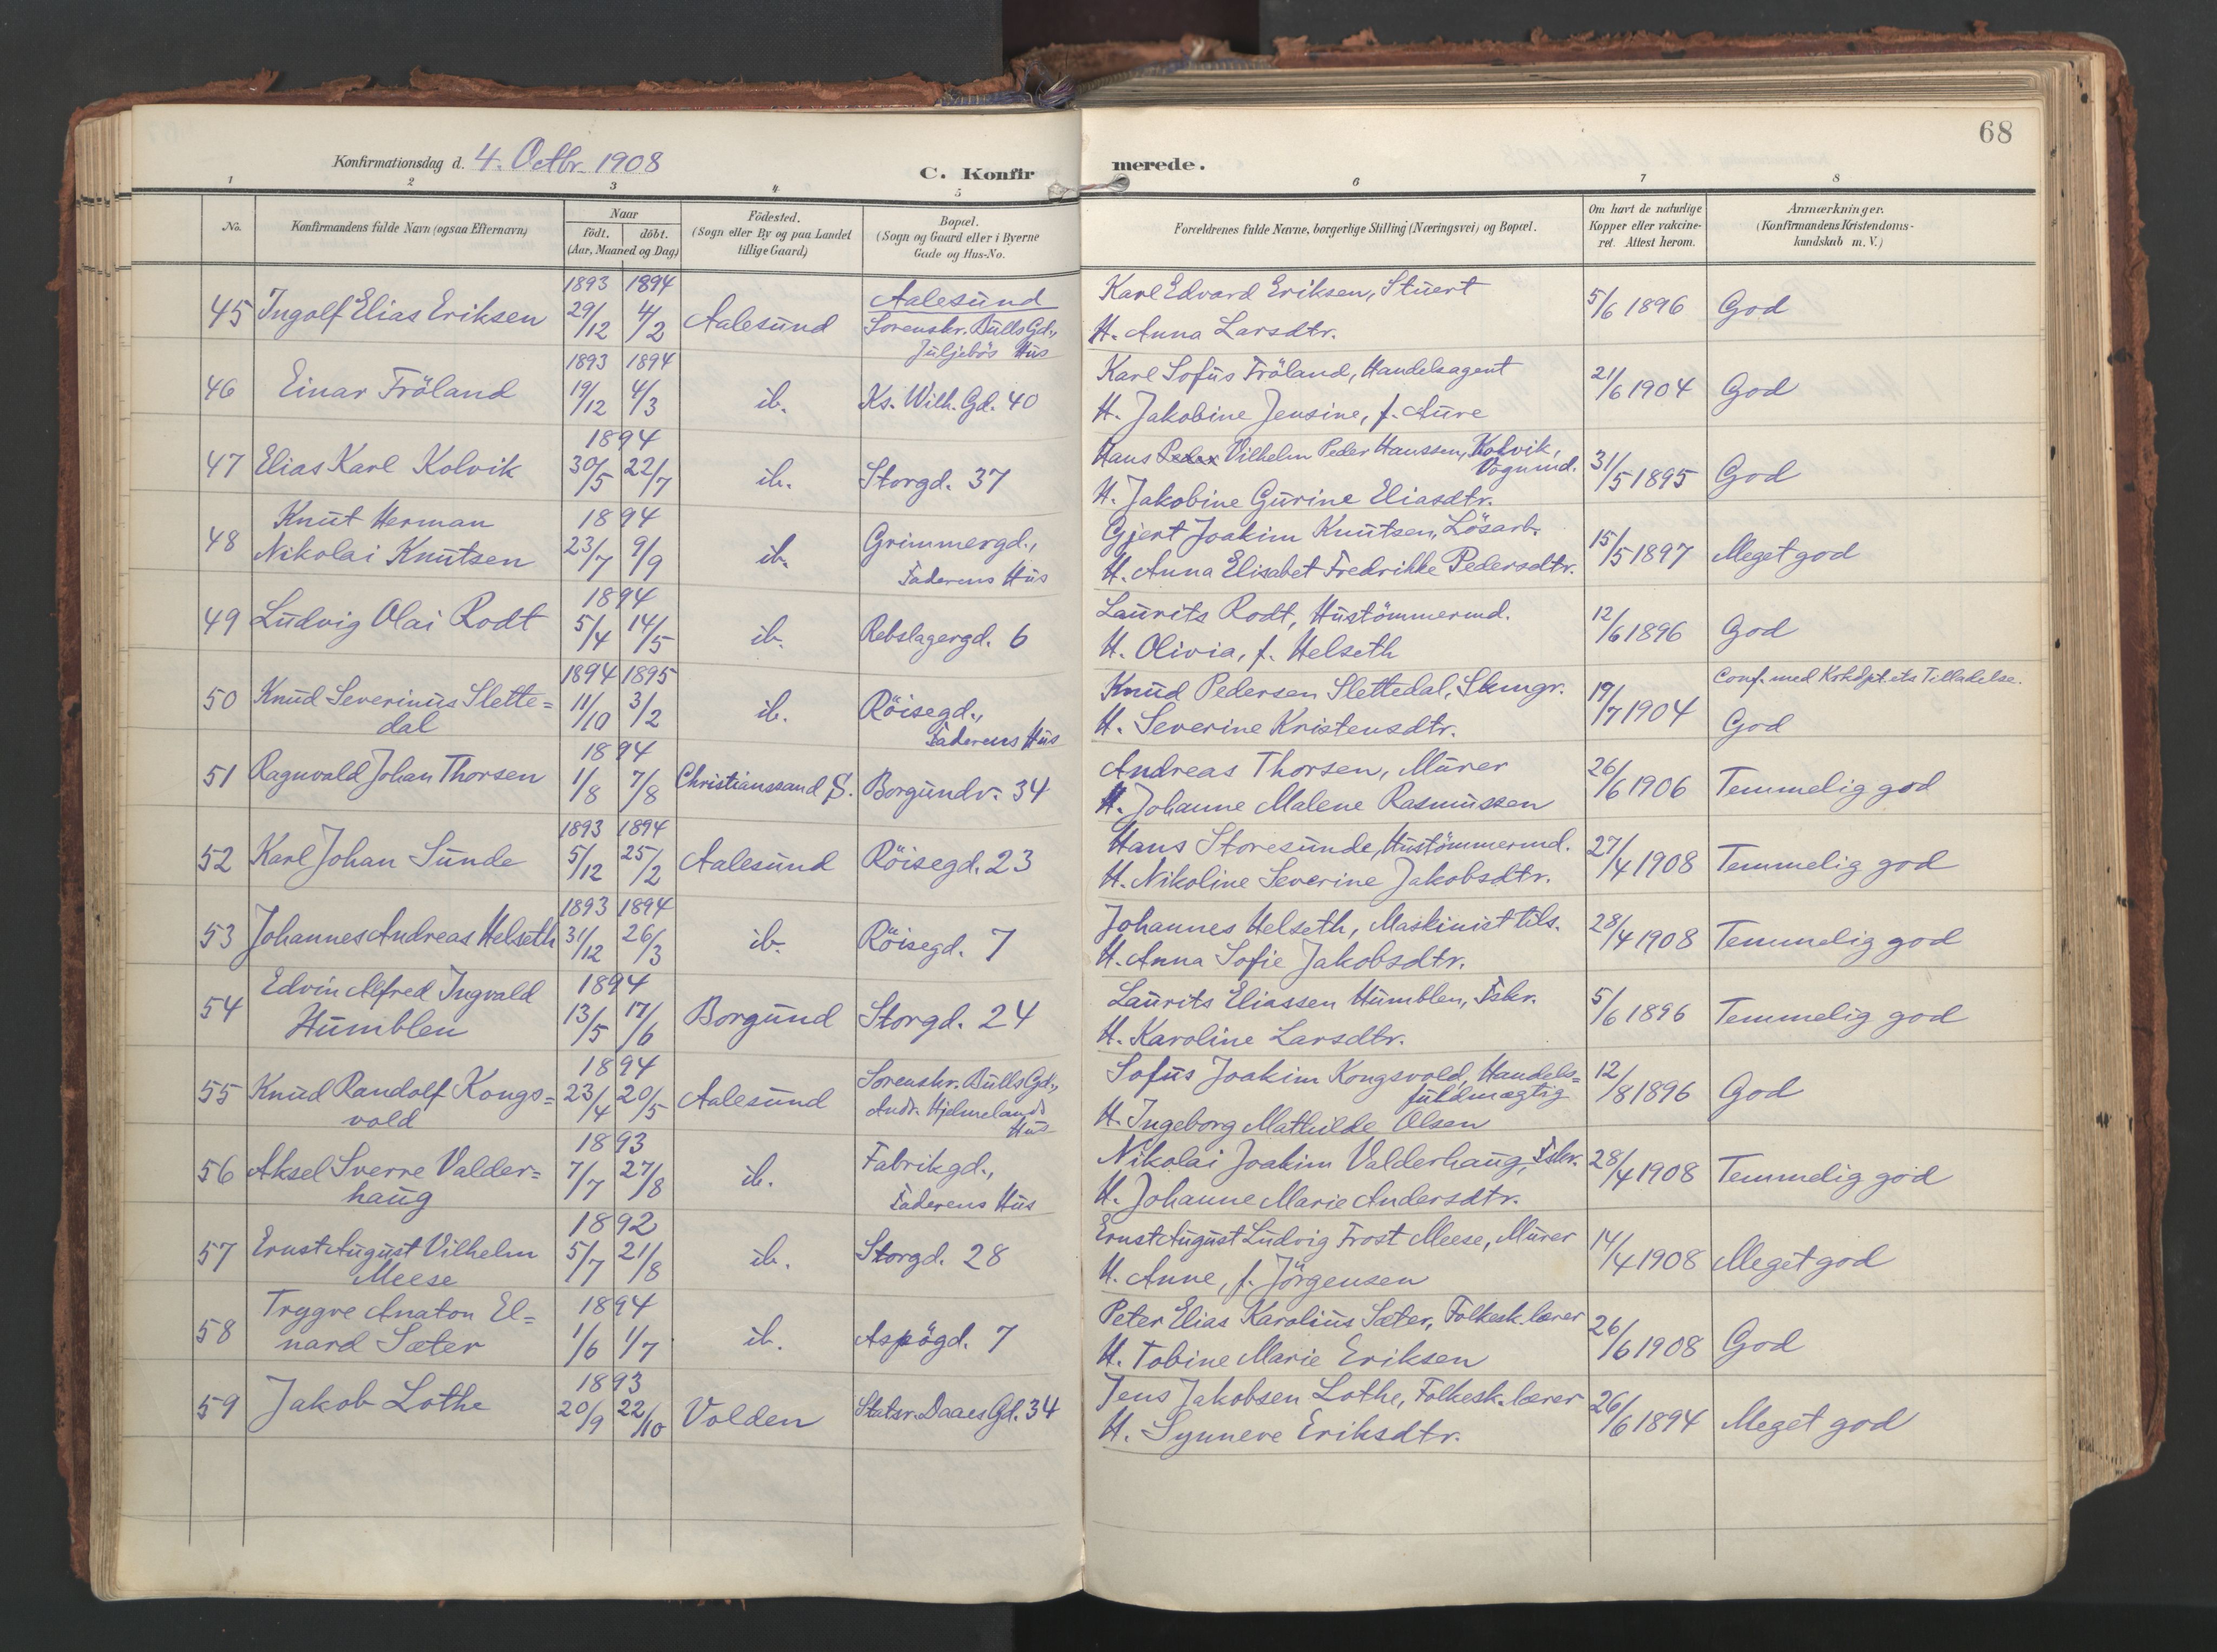 68
Konfirmationsdag d. 4. Octbr. 1908
C. Konfirmerede.
1 2 3 4 5 6 7 8
No. | Konfirmandens fulde Navn (ogsaa Efternavn) | Naar födt. döbt. (Aar, Maaned og Dag) | Födested. (Sogn eller By og paa Landet tillige Gaard) | Bopæl. (Sogn og Gaard eller i Byerne Gade og Hus-No. | Forældrenes fulde Navne, borgerlige Stilling (Næringsvei) og Bopæl. | Om havt de naturlige Kopper eller vakcineret. Attest herom. | Anmærkninger. (Konfirmandens Kristendomskundskab m. V.)
45 Ingolf Elias Eriksen | 1893 29/12 | 1894 4/2 | Aalesund | Aalesund Sorenskr. Bulls Gd., Juljebös Hus | Karl Edvard Eriksen, Stuert
H. Anna Larsdtr. | 5/6 1896 | God
46 Einar Fröland | 1893 19/12 | 1894 4/3 | ib. | Ks. Wilh. Gd. 40 | Karl Sofus Fröland, Handelsagent
H. Jakobine Jensine, f. Aure | 21/6 1904 | God
47 Elias Karl Kolvik | 1894 30/5 | 22/7 | ib. | Storgd. 37 | Hans Peder Vilhelm Peder Hanssen, Kolvik, Vognmd.
H. Jakobine Gurine Eliasdtr. | 31/5 1895 | God
48 Knut Herman Nikolai Knutsen | 1894 23/7 | 9/9 | ib. | Grimmergd., Faderens Hus | Gjert Joakim Knutsen, Lösarb.
H. Anna Elisabet Fredrikke Pedersdtr. | 15/5 1897 | Meget god
49 Ludvig Olai Rodt | 1894 5/4 | 14/5 | ib. | Rebslagergd. 6 | Laurits Rodt, Hustömmermd.
H. Olivia, f. Helseth | 12/6 1896 | God
50 Knud Severinus Slette=dal | 1894 11/10 | 1895 3/2 | ib. | Röisegd., Faderens Hus | Knud Pedersen Slettedal, Stengr.
H. Severine Kristensdtr. | 19/7 1904 | Conf. med Krkdpt.ets Tilladelse. God
51 Ragnvald Johan Thorsen | 1894 1/8 | 7/8 | Christianssand S. | Borgundv. 34 | Andreas Thorsen, Murer
H. Johanne Malene Rasmussen | 26/6 1906 | Temmelig god
52 Karl Johan Sunde | 1893 5/12 | 1894 25/2 | Aalesund | Röisegd. 23 | Hans Storesunde, Hustömmermd.
H. Nikoline Severine Jakobsdtr. | 27/4 1908 | Temmelig god
53 Johannes Andreas Helseth | 1893 31/12 | 1894 26/3 | ib. | Röisegd. 7 | Johannes Helseth, Maskinist tils.
H. Anna Sofie Jakobsdtr. | 28/4 1908 | Temmelig god
54 Edvin Alfred Ingvald Humblen | 1894 13/5 | 17/6 | Borgund | Storgd. 24 | Laurits Eliassen Humblen, Fskr.
H. Karoline Larsdtr. | 5/6 1896 | Temmelig god
55 Knud Randolf Kongs=vold | 1894 23/4 | 20/5 | Aalesund | Sorenskr. Bulls Gd., Andr. Hjelmelands Hus | Sofus Joakim Kongsvold, Handels=fuldmægtig
H. Ingeborg Mathilde Olsen | 12/8 1896 | God
56 Aksel Sverre Valder=haug | 1893 7/7 | 27/8 | ib. | Fabrikgd., Faderens Hus | Nikolai Joakim Valderhaug, Fskr.
H. Johanne Marie Andersdtr. | 28/4 1908 | Temmelig god
57 Ernst August Vilhelm Meese | 1892 5/7 | 21/8 | ib. | Storgd. 28 | Ernst August Ludvig Frost Meese, Murer
H. Anne, f. Jörgensen | 14/4 1908 | Meget god
58 Trygve Anaton El=nard Sæter | 1894 1/6 | 1/7 | ib. | Aspögd. 7 | Peter Elias Karolius Sæter, Folkesk.lærer
H. Tobine Marie Eriksen | 26/6 1908 | God
59 Jakob Lothe | 1893 20/9 | 22/10 | Volden | Statsr. Daaes Gd. 34 | Jens Jakobsen Lothe, Folkesk.lærer
H. Synneve Eriksdtr. | 26/6 1894 | Meget god